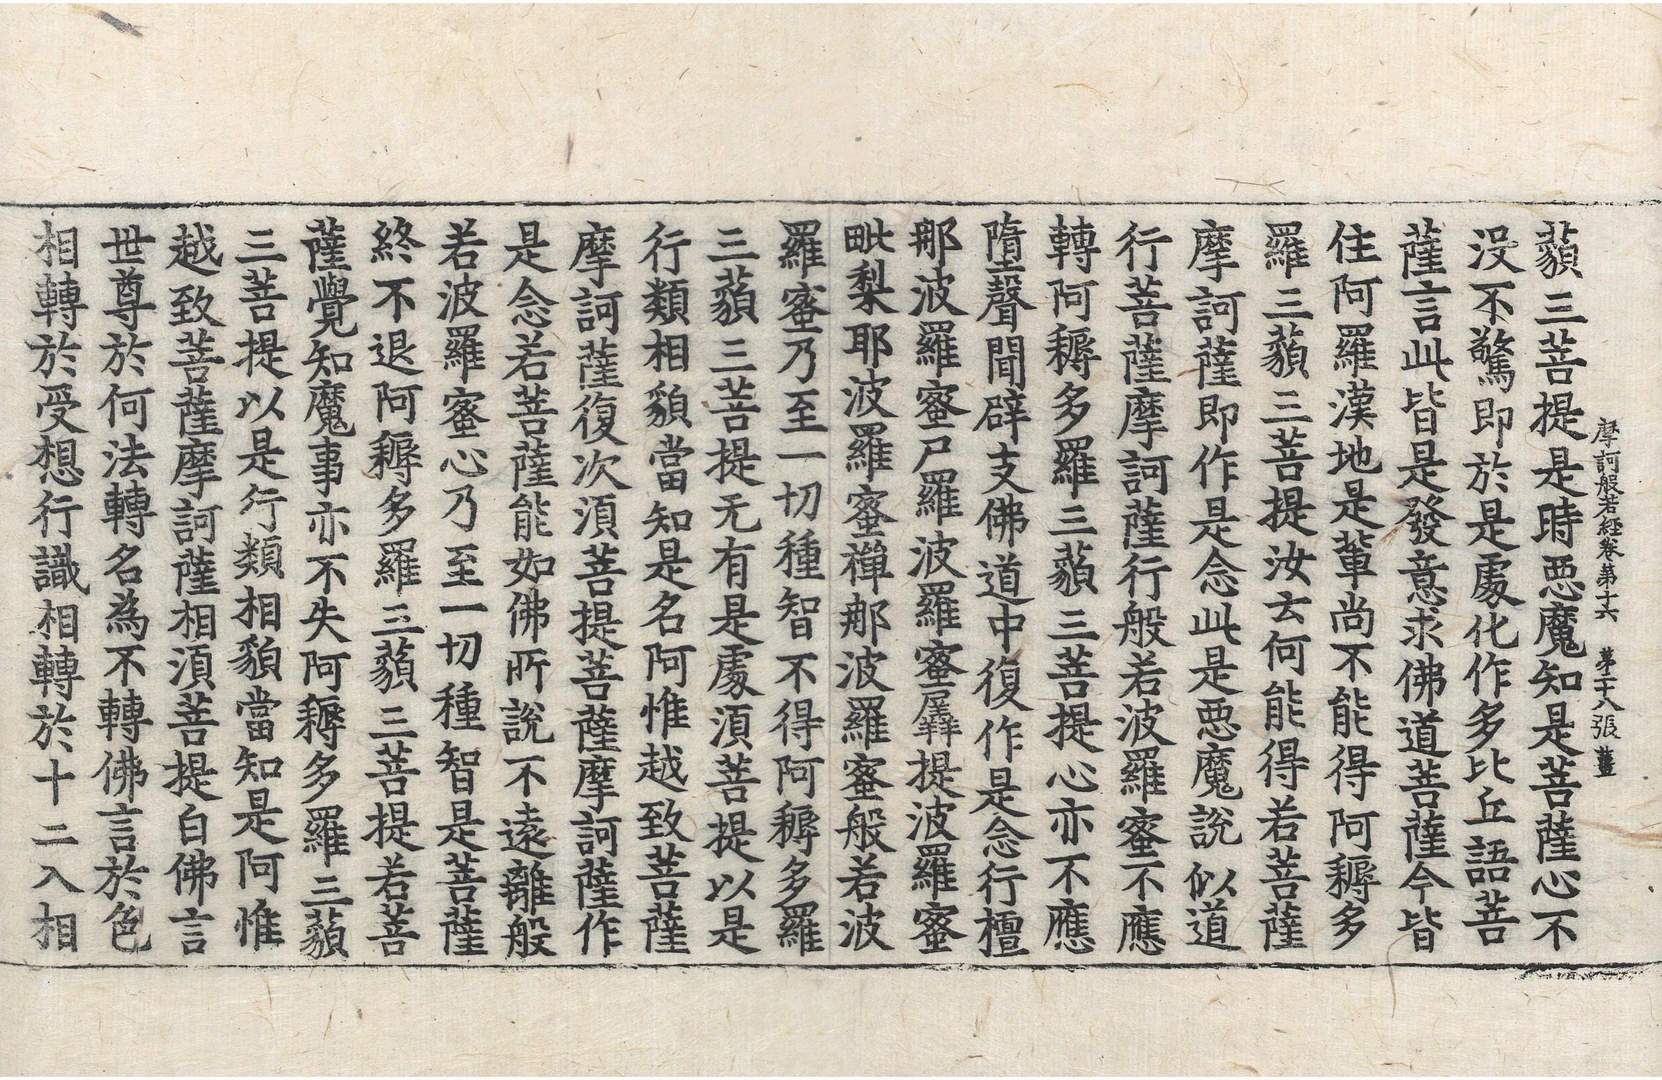 摩訶般若經卷第十六 第二十八張 薑
藐三菩提是時惡魔知是菩薩心不
没不驚即於是處化作多比丘語菩
薩言此皆是發意求佛道菩薩今皆
住阿羅漢地是輩尚不能得阿耨多
羅三藐三菩提汝云何能得若菩薩
摩訶薩即作是念此是惡魔說似道
行菩薩摩訶薩行般若波羅蜜不應
轉阿耨多羅三藐三菩提心亦不應
墮聲聞辟支佛道中復作是念行檀
那波羅蜜尸羅波羅蜜羼提波羅蜜
毗梨耶波羅蜜禪那波羅蜜般若波
羅蜜乃至一切種智不得阿耨多羅
三藐三菩提无有是處須菩提以是
行類相貌當知是名阿惟越致菩薩
摩訶薩復次須菩提菩薩摩訶薩作
是念若菩薩能如佛所說不遠離般
若波羅蜜心乃至一切種智是菩薩
終不退阿耨多羅三藐三菩提若菩
薩覺知魔事亦不失阿耨多羅三藐
三菩提以是行類相貌當知是阿惟
越致菩薩摩訶薩相須菩提白佛言
世尊於何法轉名為不轉佛言於色
相轉於受想行識相轉於十二入相